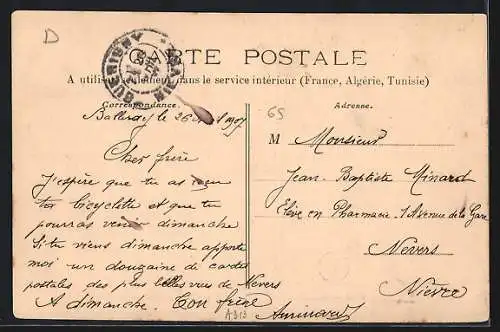 D
GUÉRIGNY
CARTE POSTALE
A utiliser seulement dans le service intérieur (France, Algérie, Tunisie)
Correspondance.
Balleray le 26 1907
Cher frère
J'espère que tu as reçu
ta bicyclette et que tu
pourras venir dimanche
Si tu viens dimanche apporte
moi un douzaine de cartes
postales des plus belles vues de Nevers
A dimanche. Ton frère
A313
69
Adresse.
M Monsieur
Jean-Baptiste Minard
Elève en Pharmacie. 1 Avenue de la Gare
Nevers
Nièvre